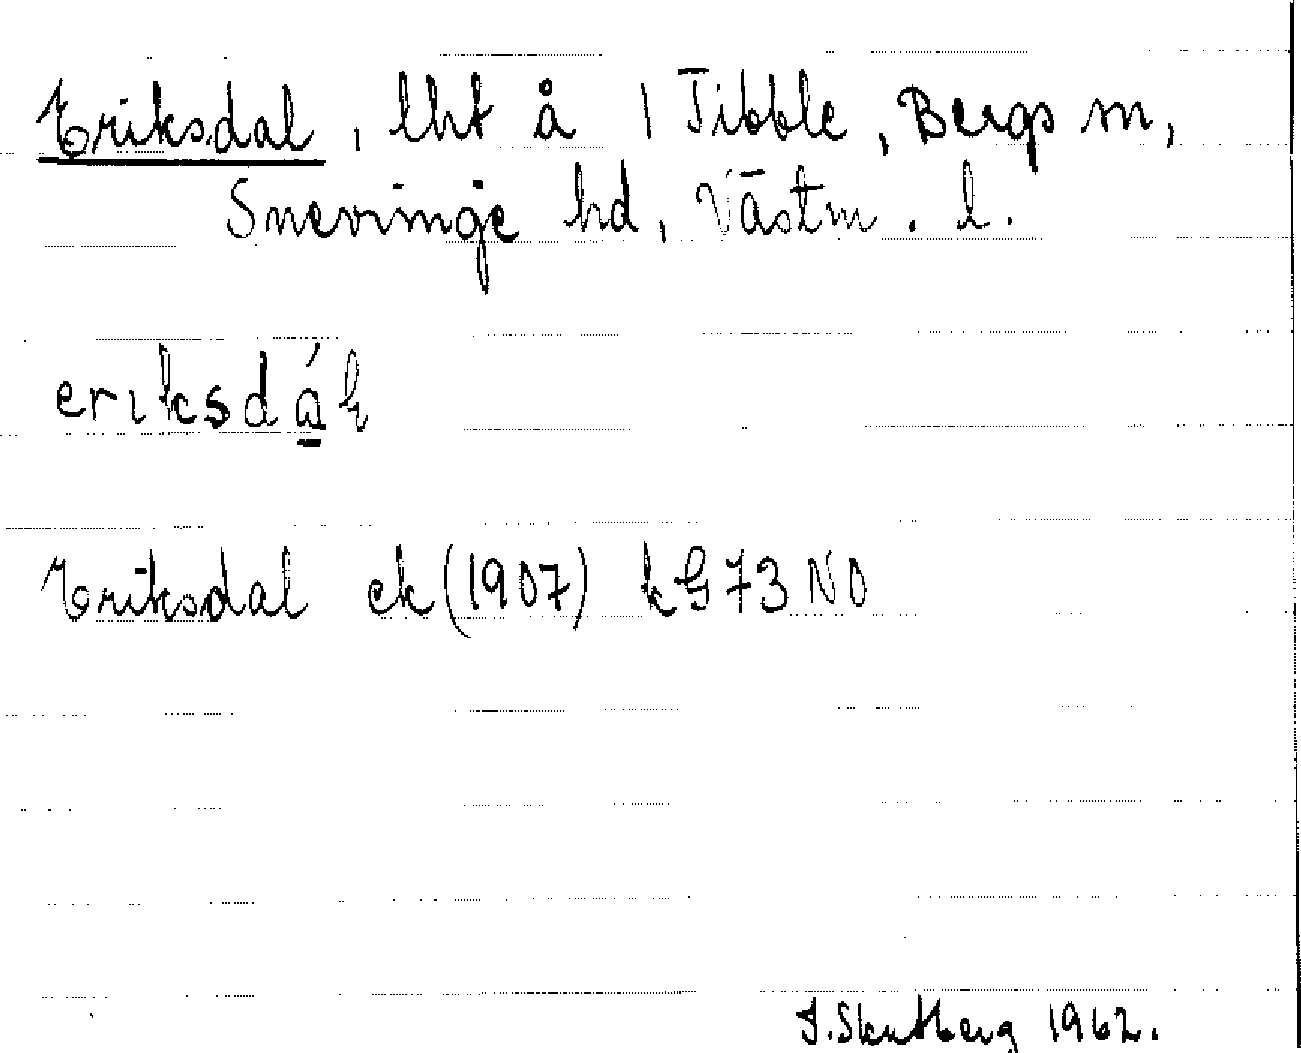 Eriksdal, lht å 1 Tibble, Bergs sn,
Snevringe hd, Västm. l.
eriksdá̱l
Eriksdal ek (1907) kG 73 NO
J. Skutberg 1962.